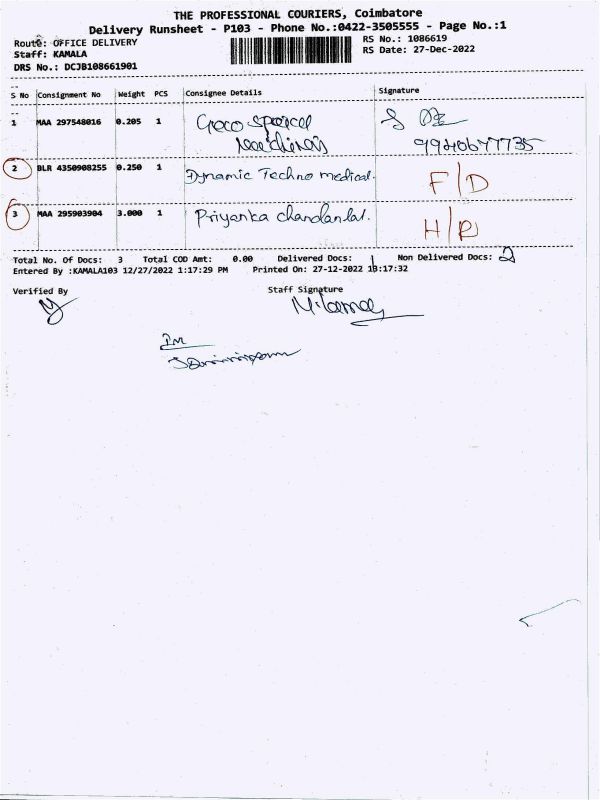 THE PROFESSIONAL COURIERS, Coimbatore
Delivery Runsheet - P103 - Phone No.:0422-3505555 - Page No.:1
Route: OFFICE DELIVERY
RS No.: 1086619
Staff: KAMALA
RS Date: 27-Dec-2022
DRS No.: DCJB108661901
S No Consignment No Weight PCS Consignee Details Signature
1 MAA 297548016 0.205 1
9940677735
2 BLR 4350908255 0.250 1 Dynamic Techno medical. F/D
3 MAA 295903904 3.000 1 Priyanka chandanlal. H/R
Total No. Of Docs: 3 Total COD Amt: 0.00 Delivered Docs: 1 Non Delivered Docs: 2
Entered By :KAMALA103 12/27/2022 1:17:29 PM Printed On: 27-12-2022 13:17:32
Verified By Staff Signature